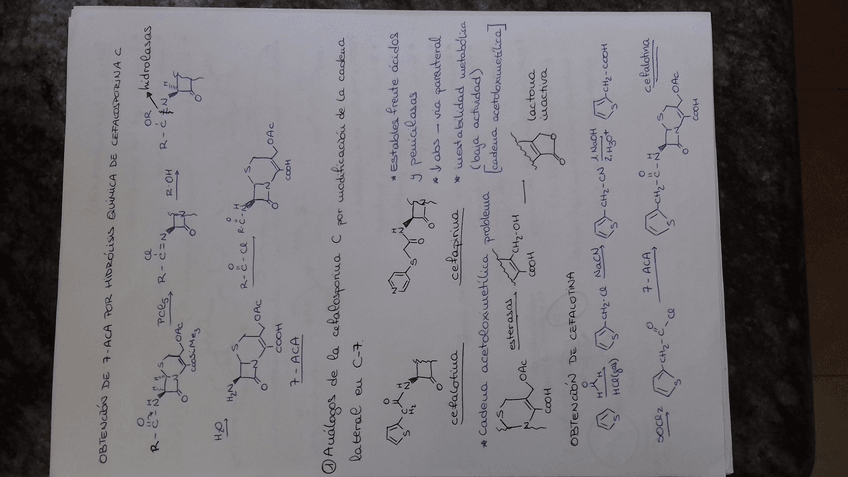 OBTENCIÓN DE 7-ACA POR HIDRÓLISIS QUÍMICA DE CEFALOSPORINA C
R-C-N
O
H
S
N
O
OAc
COOSiMe3
PCl5
R-C=N
Cl
O
R-OH
OR
hidrolasas
R-C-N
H
O
H2O
H2N
S
N
O
OAc
COOH
7-ACA
R-C-Cl
O
R-C-N
O H
S
N
O
OAc
COOH
① Análogos de la cefalosporina C por modificación de la cadena
lateral en C-7
S
C
H2
O
H
N
O
cefalotina
N
S
O
H
N
O
cefapirina
* Estables frente ácidos
y penicilasas
* ↓ abs - vía parenteral
* inestabilidad metabólica
(baja actividad)
[cadena acetoloximetílica]
* Cadena acetoloximetílica problema
S
N
O
OAc
COOH
esterasas
CH2-OH
COOH
O
O
lactona
inactiva
OBTENCIÓN DE CEFALOTINA
S
H H
O
HCl(gas)
S CH2-Cl
NaCN
S CH2-CN
1 NaOH
2 H3O+
S CH2-COOH
SOCl2
S CH2-C
O
Cl
7-ACA
S CH2-C-N
O H
S
N
O
OAc
COOH
cefalotina